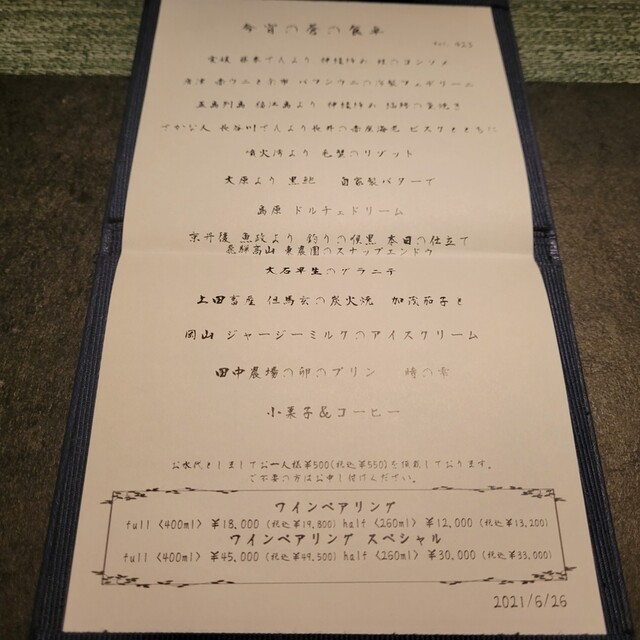 今宵の蒼の饗宴
愛媛 藤本さんより 神経〆め 鱧のコンソメ
唐津 赤ウニと余市 バフンウニの冷製フェデリーニ
五島列島 福江島より 神経〆め
でかな人 長谷川さんより 長井の赤座海老 ビスクとともに
噴火湾より 毛蟹のリゾット
大原より 黒鮑 自家製バターで
島原 ドルチェドリーム
魚政より 釣りの 本日の仕立て
飛騨高山 東農園のスナップエンドウ
大石早生のグラニテ
上田畜産 但馬玄の炭火焼 加茂茄子と
岡山 ジャージーミルクのアイスクリーム
田中農場の卵のプリン 時の雫
小菓子&コーヒー
お水代としましてお一人様¥500(税込¥550)を頂戴しております。
ご不要の方はお申し付けください。
ワインペアリング
full (400ml) ¥18,000 (税込¥19,800) half (260ml) ¥12,000 (税込¥13,200)
ワインペアリング スペシャル
full (400ml) ¥45,000 (税込¥49,500) half (260ml) ¥30,000 (税込¥33,000)
2021/6/26